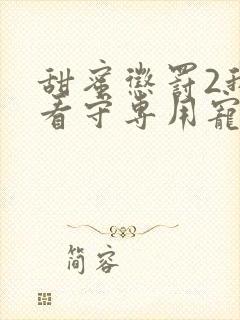 甜蜜惩罚2我
看守专用宠
简容